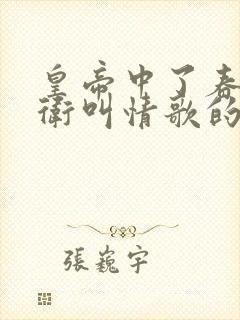 皇帝中了春
衛叫情歌的
張巍宇